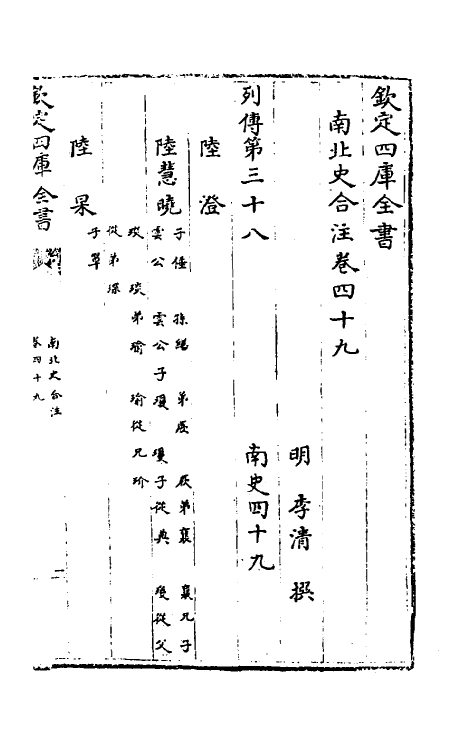 欽定四庫全書
南北史合注卷四十九
明 李清 撰
列傳第三十八 南史四十九
陸 澄
陸慧曉 子倕 孫繕 弟厥 厥弟襄 襄兄子
雲公 雲公子瓊 瓊子從典 瓊從父
琰 琰弟瑜 瑜從兄玠
從弟琛
陸 杲 子罩
欽定四庫全書
南北史合注
卷四十九